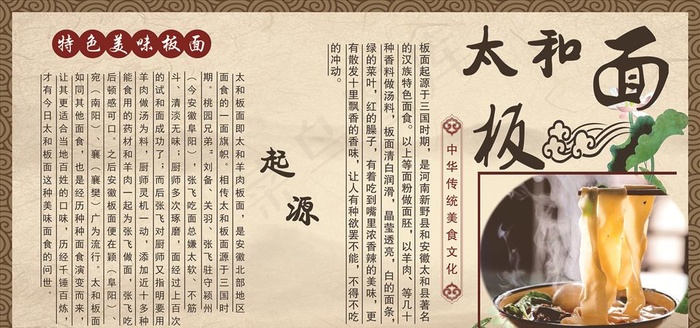 太和板面
中华传统美食文化
板面起源于三国时期，是河南新野县和安徽太和县著名
的汉族特色面食。以上等面粉做面胚，以羊肉、等几十
种香料做汤料，板面清白润滑，晶莹透亮，白的面条，
绿的菜叶，红的臊子，有着吃到嘴里浓香辣的美味，更
有散发十里飘香的香味，让人有种欲罢不能，不得不吃
的冲动。
起源
特色美味板面
太和板面即太和羊肉板面，是安徽北部地区
面食的一面旗帜。相传太和板面源于三国时
期。桃园兄弟，刘备、关羽、张飞驻守颍州
（今安徽阜阳），张飞吃面总嫌太软、不筋
斗、清淡无味；厨师多次琢磨，面经过上百次
的试和面成功了；而后张飞对厨师又指明要用
羊肉做汤为料，厨师灵机一动，添加近十多种
能食用的药材和羊肉一起为张飞做面，张飞吃
后顿感可口。之后安徽板面便在颖（阜阳）、
宛（南阳）、襄（襄樊）广为流行。太和板面
如同其他面食，也是经历种种面食演变而来，
让其更适合当地百姓的口味，历经千锤百炼，
才有今日太和板面这种美味面食的问世。